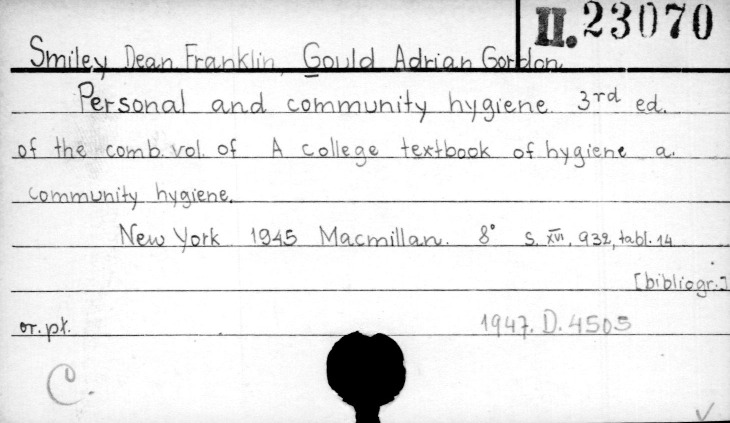 II. 23070
Smiley Dean Franklin, Gould Adrian Gordon.
Personal and community hygiene. 3rd ed.
of the comb. vol. of A college textbook of hygiene a.
community hygiene.
New York 1945 Macmillan. 8° s. XVI, 932, tabl. 14
[bibliogr.]
or. pł. 1947. D. 4505
C.